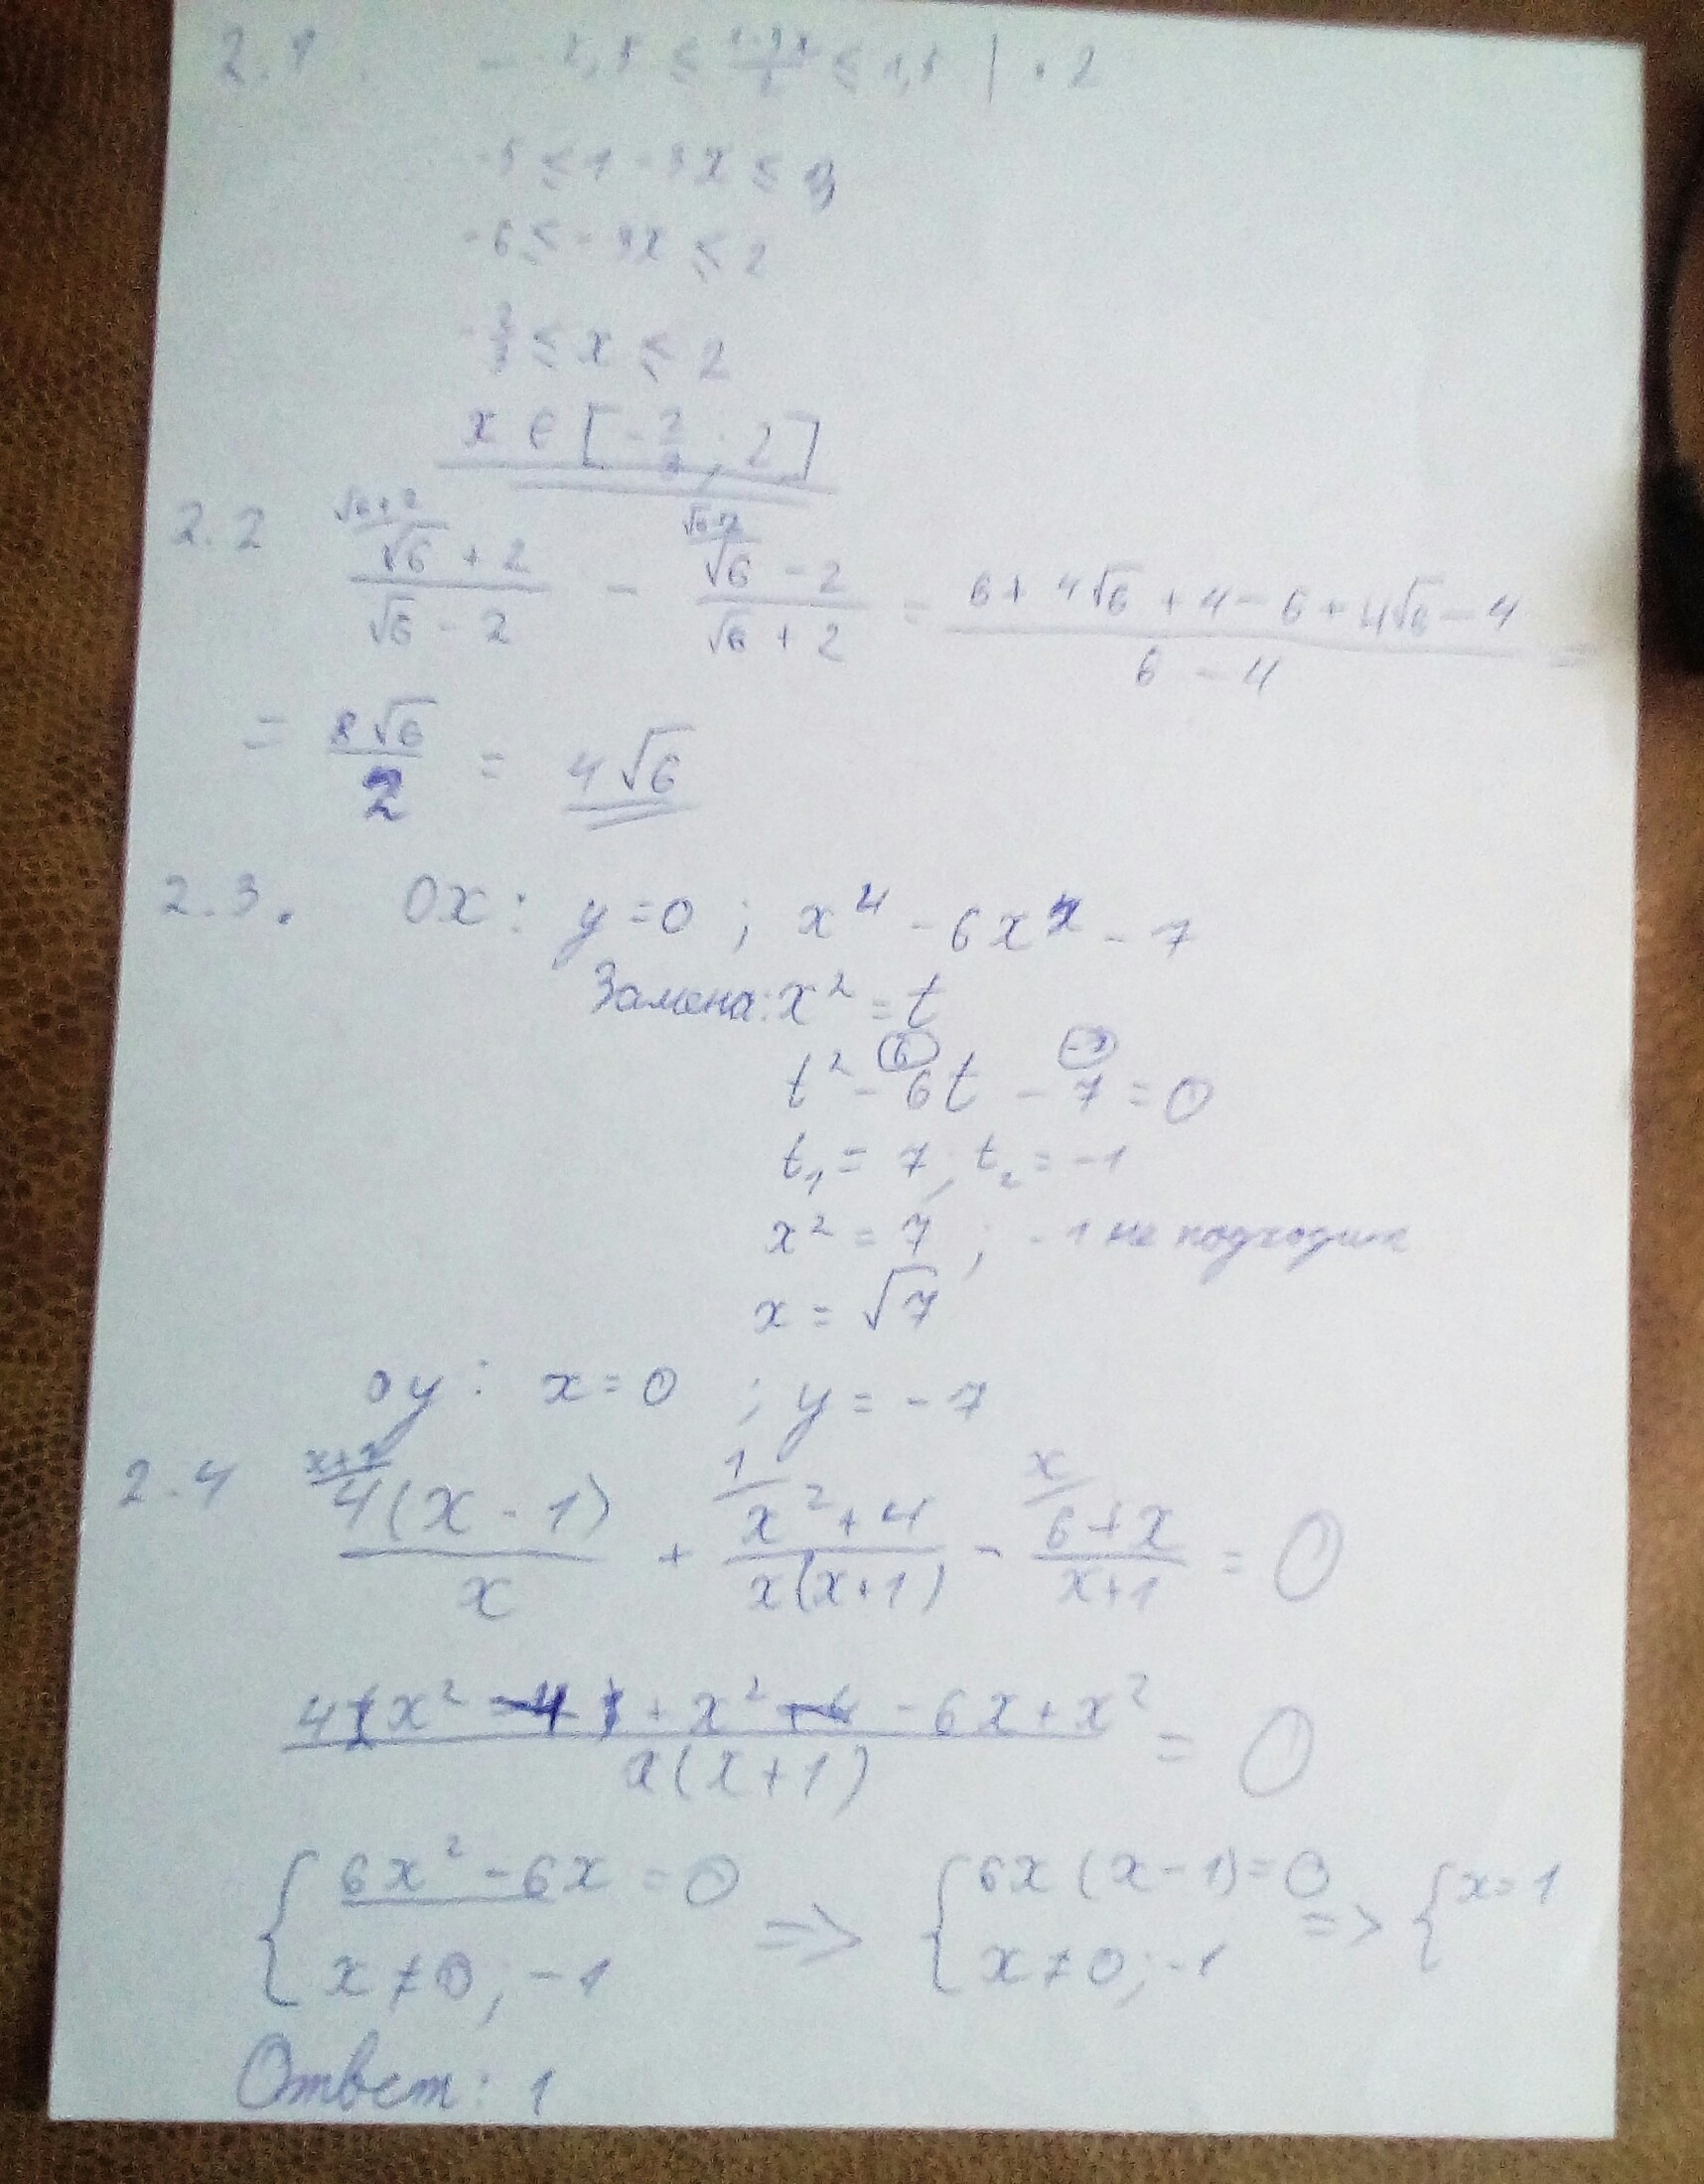 2.1. -2,5 ≤ (1-3x)/2 ≤ 1,5 | · 2
-5 ≤ 1 - 3x ≤ 3
-6 ≤ -3x ≤ 2
-2/3 ≤ x ≤ 2
x ∈ [-2/3 ; 2]
2.2 (√6 + 2)/(√6 - 2) - (√6 - 2)/(√6 + 2) = (6 + 4√6 + 4 - 6 + 4√6 - 4)/(6 - 4) =
= 8√6/2 = 4√6
2.3. Ox: y=0 ; x⁴ - 6x² - 7
Замена: x² = t
t² - 6t - 7 = 0
t₁ = 7; t₂ = -1
x² = 7 ; -1 не подходит
x = √7
oy: x=0 ; y = -7
2.4 4(x-1)/x + (x²+4)/(x(x+1)) - (6+x)/(x+1) = 0
(4x² + x² - 6x + x²)/(x(x+1)) = 0
{ 6x² - 6x = 0 => { 6x(x-1)=0 => { x=1
x≠0; -1 x≠0; -1
Ответ: 1